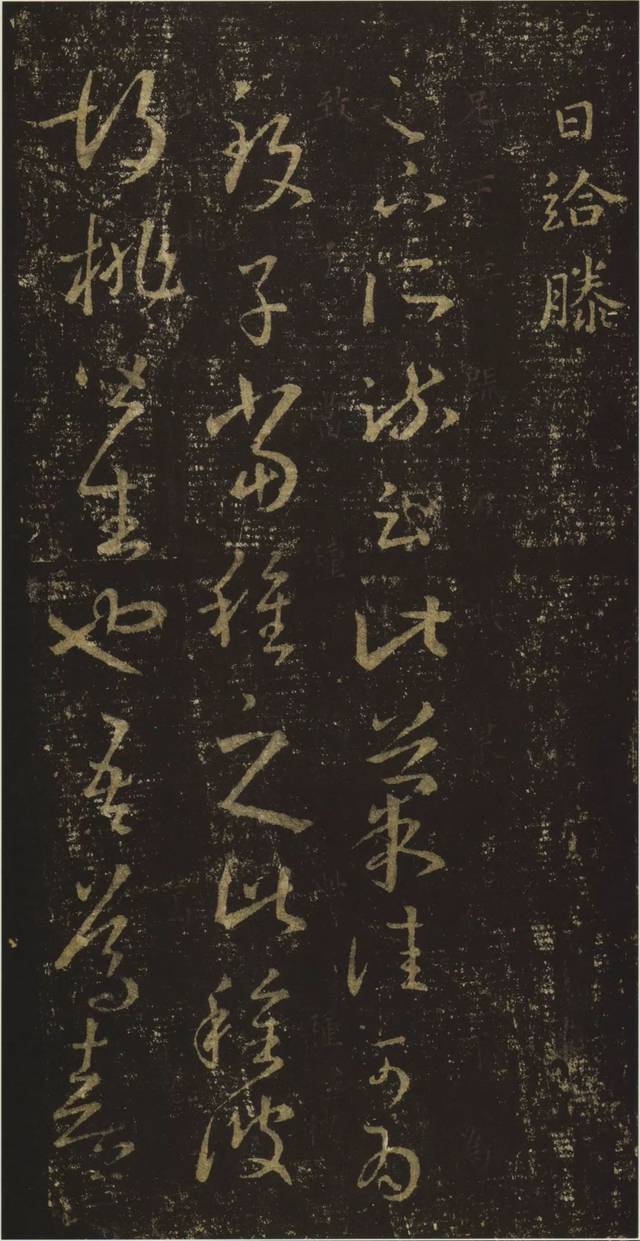 日給滕
足下所疏云此菓佳可為
致子當種之此種彼
胡桃皆生也吾篤喜